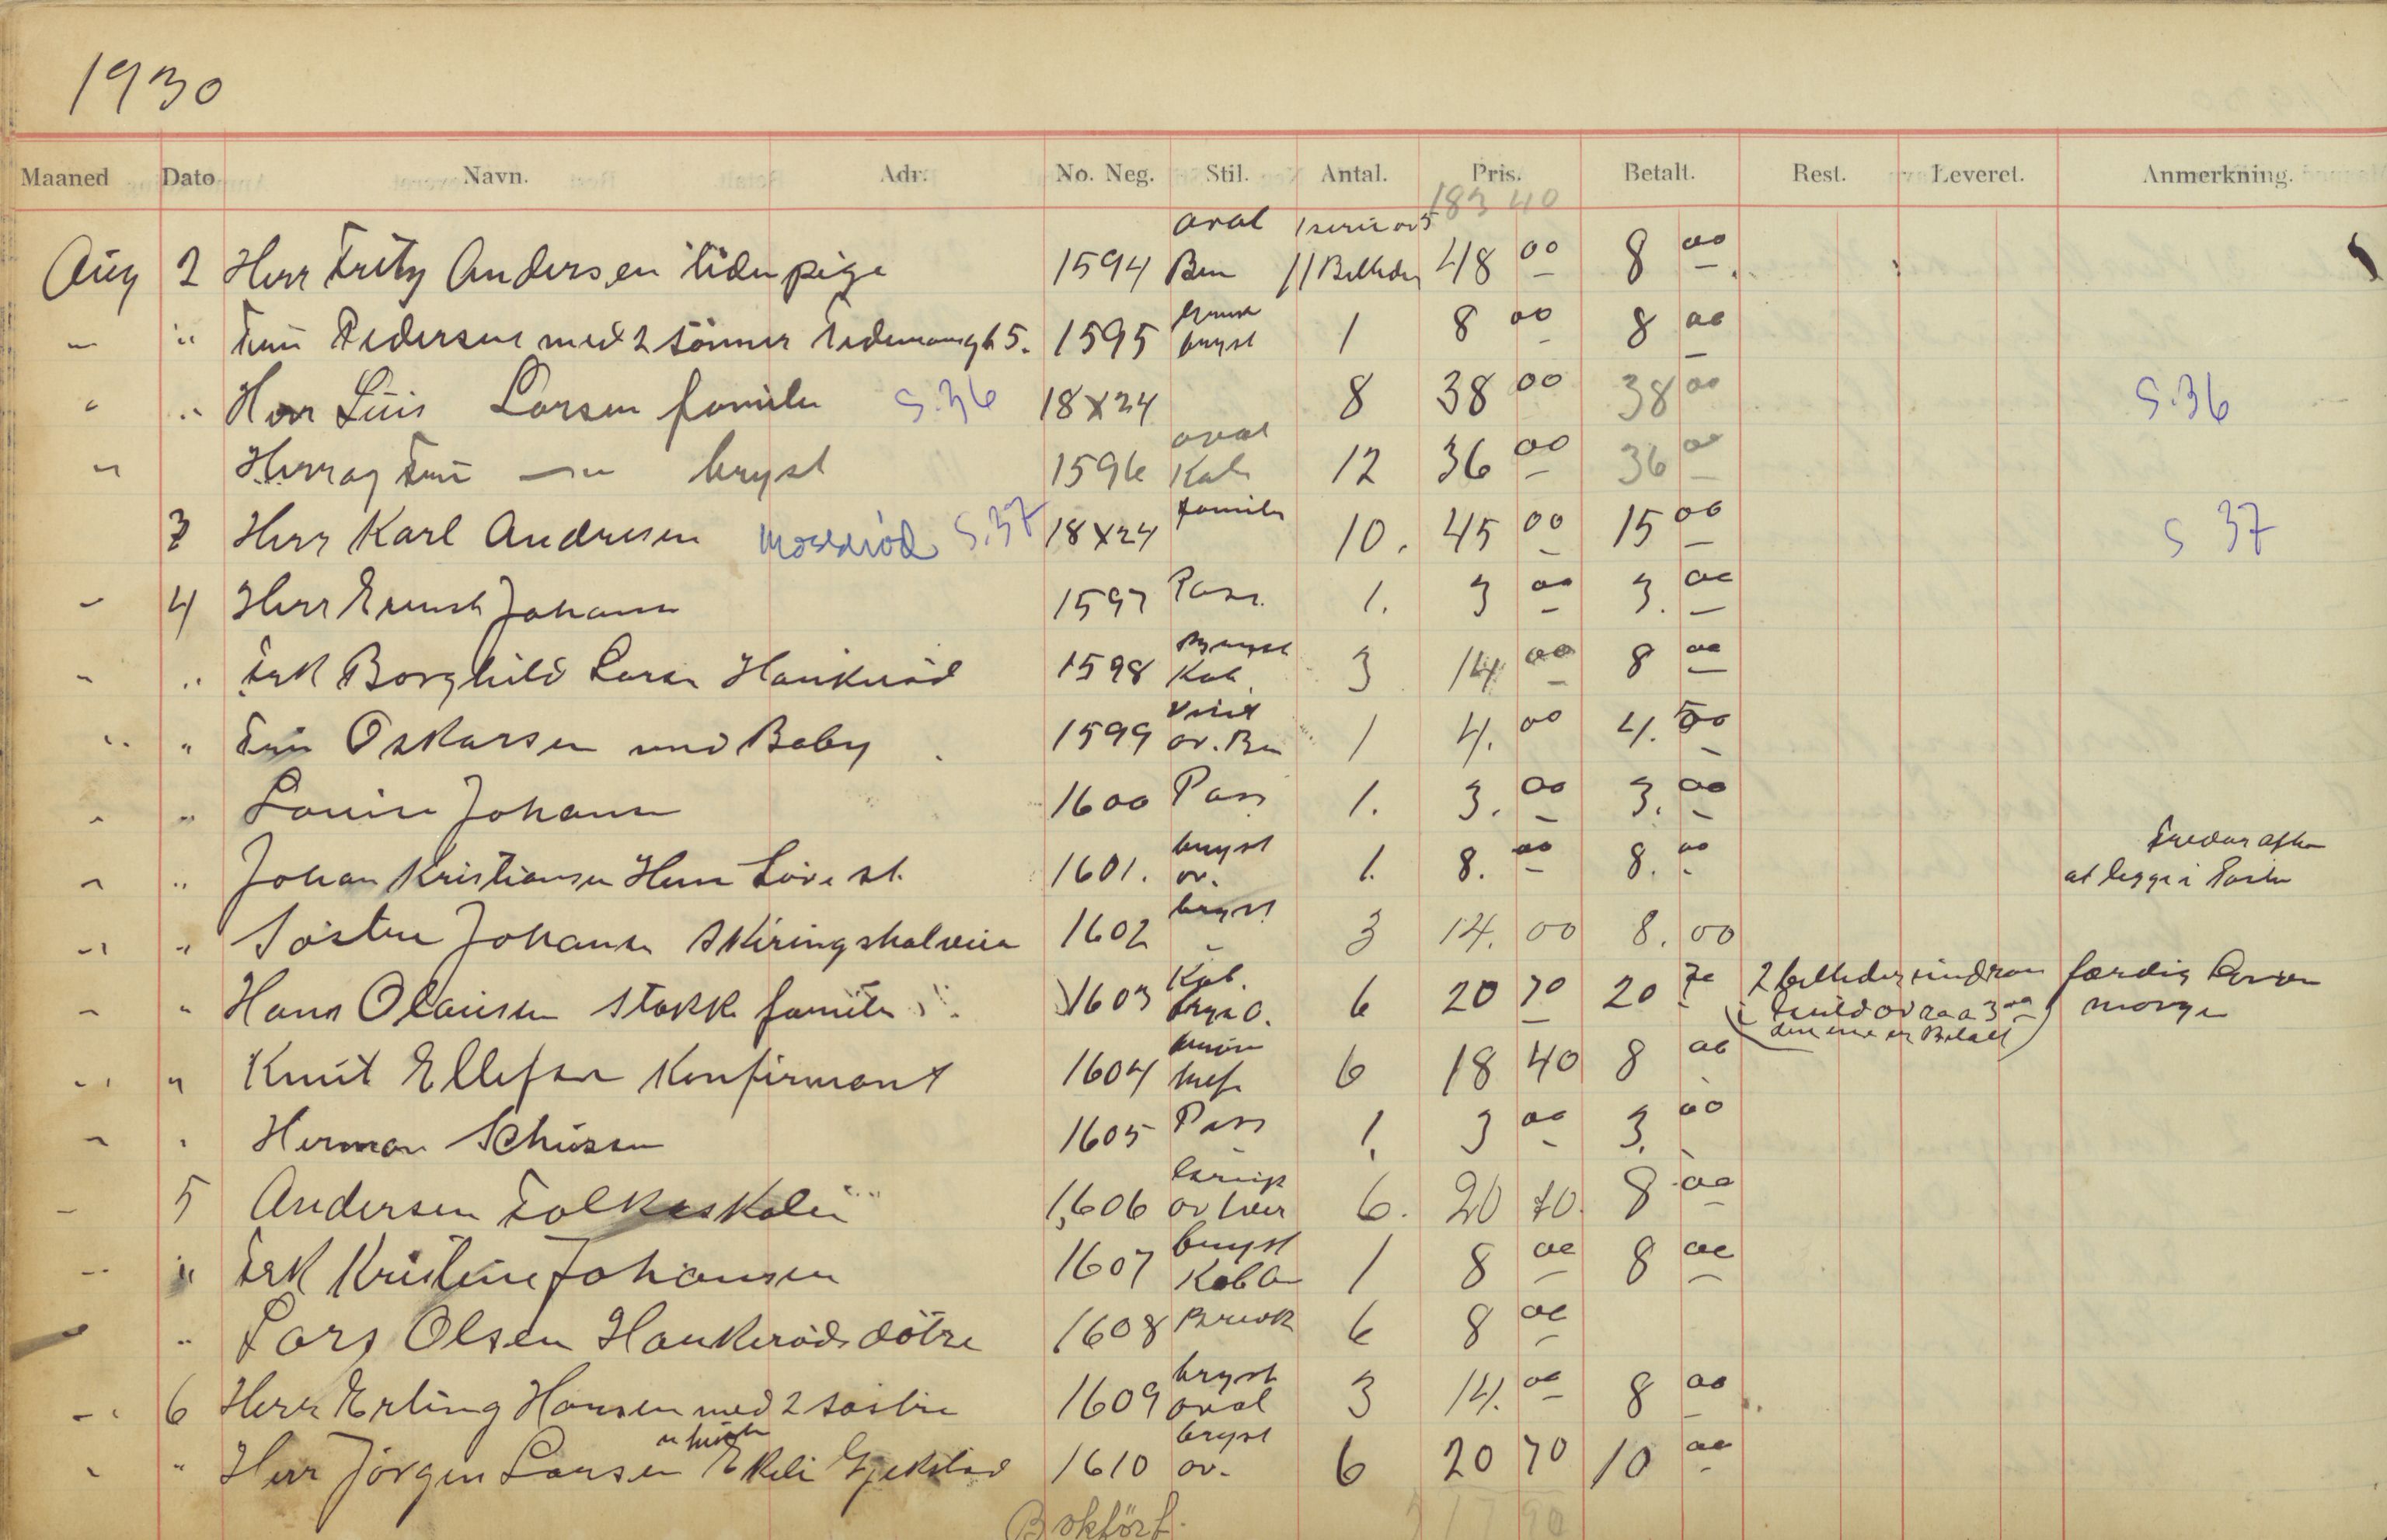 1930
Maaned Dato Navn. Adr. No. Neg. Stil. Antal. Pris. Betalt. Rest. Leveret. Anmerkning.
183 40
Aug 2 Herr Fritz Andersen liden pige 1594 oval Ben 11 Billeder 48 00 8 00
" Fru Pedersen med 2 sönner 1595 bryst 1 8 00 8 00
" Herr Luis Larsen familie S.36 18x24 8 38 00 38 00 S.36
Herr og Fru bryst 1596 oval Kab 12 36 00 36 00
3 Herr Karl Andresen S.37 18x24 familie 10. 45 00 15 00 S 37
4 Herr Johansen 1597 Pass. 1. 3 00 3. 00
" Frk Borghild Larsen Haukeröd 1598 Kab. 3 14 00 8 00
" Fru Oskarsen med Baby 1599 Visit ov. Ben 1 4. 00 4. 00
" Louise Johansen 1600 Pass 1. 3. 00 3. 00
" Johan Kristiansen 1601. bryst ov. 1. 8. 00 8. 00 at legge i Posten
" Söstre Johansen Skiringsalveien 1602 bryst 3 14. 00 8. 00
" Hans Olausen Stokke familie 1603 Kab. 6 20 70 20 70 2 billeder færdig
morgen
den ene er Betalt
" Knut Ellefsen Konfirmant 1604 6 18 40 8 00
" Herman 1605 Pass 1. 3 00 3. 00
5 Andersen Folkeskolen 1606 6. 20 70 8 00
" Frk Kristine Johansen 1607 bryst Kab 1 8 00 8 00
" Lars Olsen Haukeröd dötre 1608 6 8 00
6 Herr Erling Hansen med 2 söstre 1609 bryst oval 3 14. 00 8 00
" Herr Jörgen Larsen Ekeli 1610 bryst ov. 6 20 70 10 00
Bokfört.